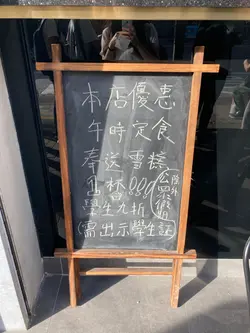 本店優惠
午時定食
奉送雪糕
凸一杯88g(公眾假除外)
學生九折
(需出示學生証)